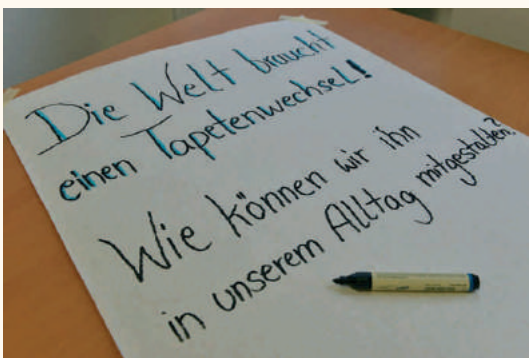 Die Welt braucht
einen Tapetenwechsel!
Wie können wir ihn
in unserem Alltag mitgestalten?